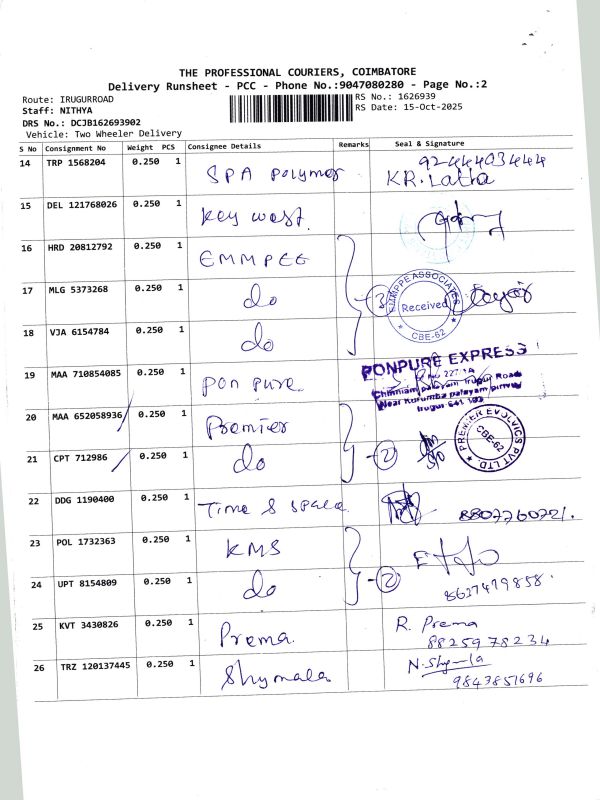 THE PROFESSIONAL COURIERS, COIMBATORE
Delivery Runsheet - PCC - Phone No.:9047080280 - Page No.:2
Route: IRUGURROAD
RS No.: 1626939
Staff: NITHYA
RS Date: 15-Oct-2025
DRS No.: DCJB162693902
Vehicle: Two Wheeler Delivery
S No Consignment No Weight PCS Consignee Details Remarks Seal & Signature
14 TRP 1568204 0.250 1 SPA Polymer 9244403444
K.R. Latha
15 DEL 121768026 0.250 1 Key west
16 HRD 20812792 0.250 1 EMMPEE
17 MLG 5373268 0.250 1 do 3 ASSOCIATES Received CBE-62
18 VJA 6154784 0.250 1 do
19 MAA 710854085 0.250 1 Pon pure PONPURE EXPRESS
Chinniam palayam Irugur Road
Near Kurumba palayam pirivu
Irugur 641 103
20 MAA 652058936 0.250 1 Premier
21 CPT 712986 0.250 1 do 2 PREMIER EVOLVICS PVT LTD. CBE-62
22 DDG 1190400 0.250 1 Time & space 8807760721.
23 POL 1732363 0.250 1 KMS
24 UPT 8154809 0.250 1 do 2 8617479858
25 KVT 3430826 0.250 1 Prema R. Prema
8825978234
26 TRZ 120137445 0.250 1 Shymala N. Shymla
9843851696